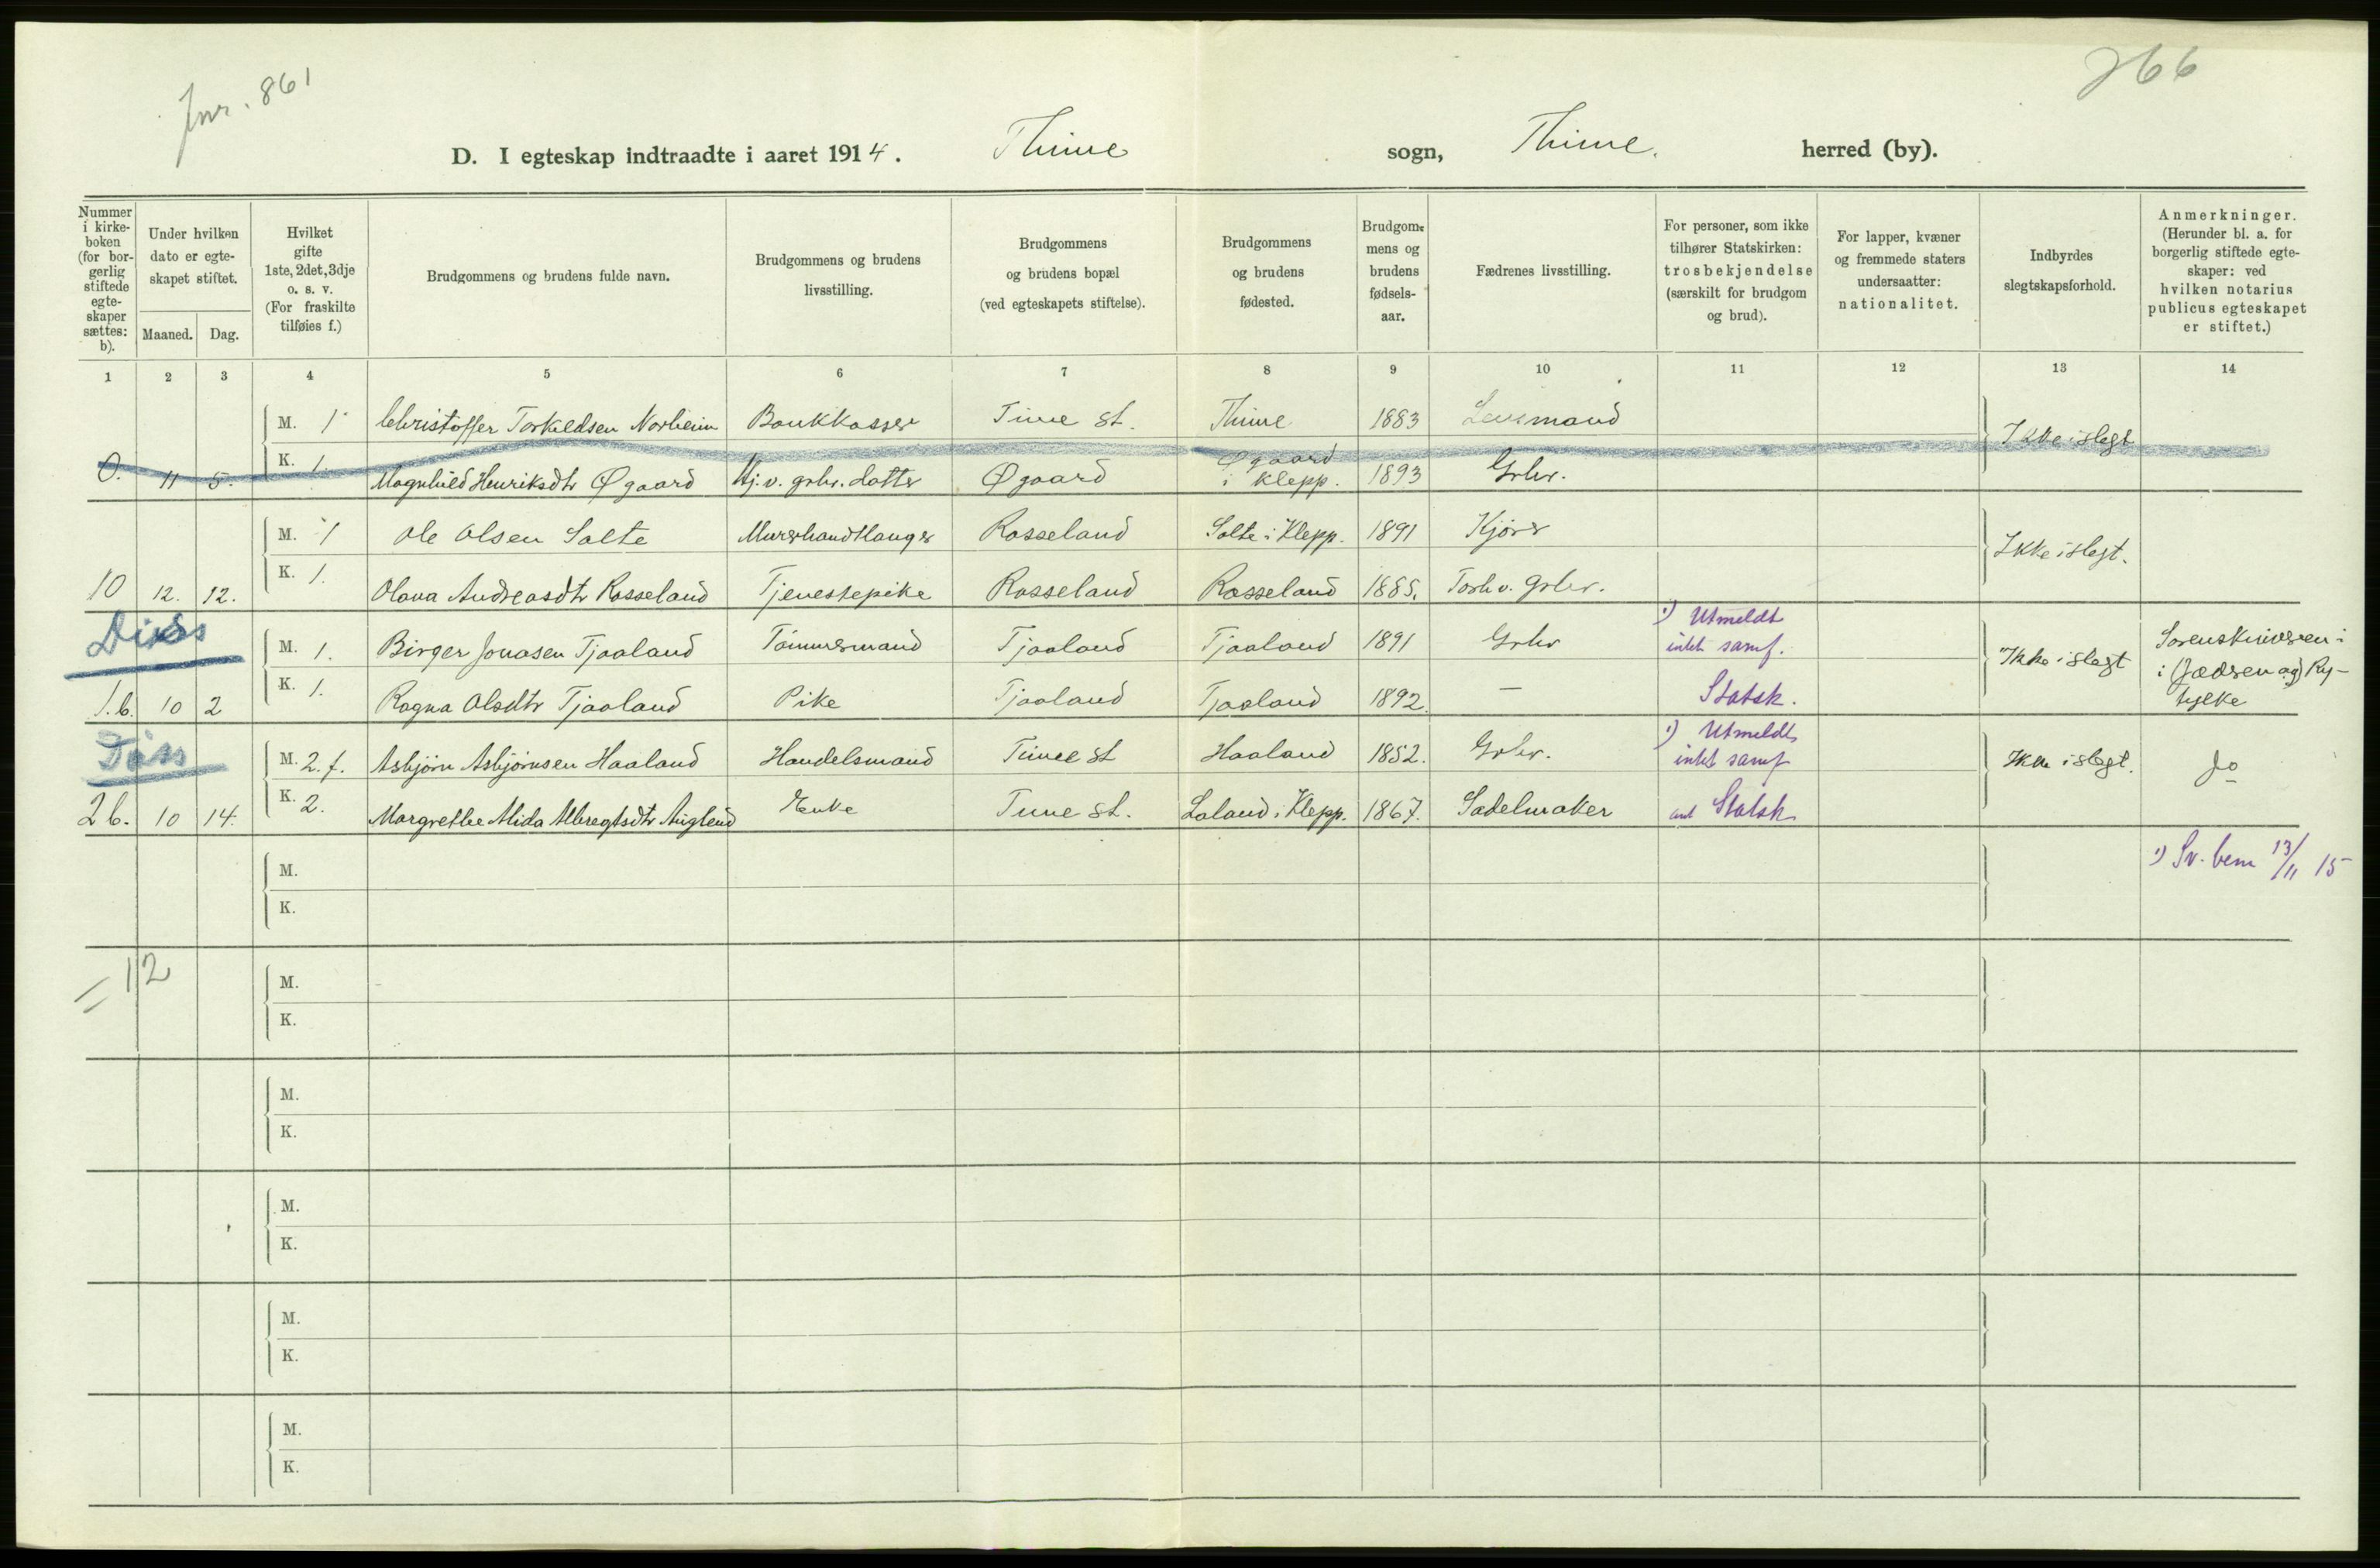 Jnr. 861
266
D. I egteskap indtraadte i aaret 1914. Thime sogn, Thime. herred (by).
Nummer i kirke-boken (for bor-gerlig stiftede egte-skaper sættes: b).
Under hvilken dato er egte-skapet stiftet.
Maaned. Dag.
Hvilket gifte 1ste, 2det, 3dje o. s. v. (For fraskilte tilføies f.)
Brudgommens og brudens fulde navn.
Brudgommens og brudens livsstilling.
Brudgommens og brudens bopæl (ved egteskapets stiftelse).
Brudgommens og brudens fødested.
Brudgom-mens og brudens fødsels-aar.
Fædrenes livsstilling.
For personer, som ikke tilhører Statskirken: trosbekjendelse (særskilt for brudgom og brud).
For lapper, kvæner og fremmede staters undersaatter: nationalitet.
Indbyrdes slegtskapsforhold.
Anmerkninger. (Herunder bl. a. for borgerlig stiftede egte-skaper: ved hvilken notarius publicus egteskapet er stiftet.)
1 2 3 4 5 6 7 8 9 10 11 12 13 14
M. 1 Christoffer Torkildsen Norheim Bankkasser Time st. Thime 1883 Lensmand Ikke i slegt
0. 11 5. K. 1. Magnhild Henriksdtr Øgaard Hj. v. grbr. datter Øgaard Øgaard i Klepp. 1893 Grbr.
M. 1 Ole Olsen Salte Murerhandtlanger Rosseland Salte i Klepp. 1891 Kjører Ikke i slegt.
10 12. 12. K. 1. Olava Andreasdtr Rosseland Tjenestepike Rosseland Rosseland 1885. Forh v. Grbr.
Diss
M. 1. Birger Jonasen Tjaaland Tømmermand Tjaaland Tjaaland 1891 Grbr 1) Utmeldt intet samf. Ikke i slegt Sorenskriveren i i (Jædren og) Ry-fylke
1. b. 10 2 K. 1. Ragna Olsdtr Tjaaland Pike Tjaaland Tjaaland 1892. — Statsk.
Diss
M. 2. f. Asbjørn Asbjørnsen Haaland Handelsmand Time st Haaland 1852. Grbr. 1) Utmeldt intet samf Ikke i slegt. Do
2 b. 10 14. K. 2. Margrethe Alida Albregtsdtr Auglend Enke Time st. Laland i Klepp. 1867. Sadelmaker Statsk
M. 1) Sv. bem 13/11 15
K.
= 12
M.
K.
M.
K.
M.
K.
M.
K.
M.
K.